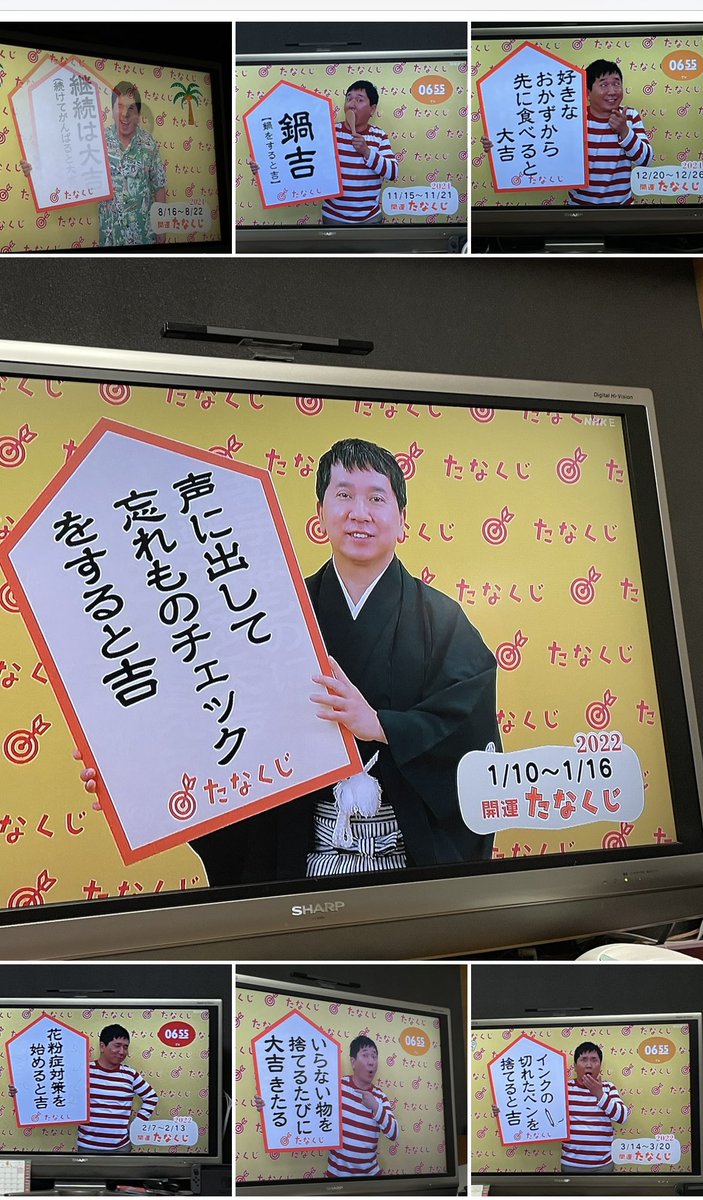 継続は大吉
(続けてがんばると大吉)
たなくじ
2021
8/16〜8/22
開運 たなくじ
0655
鍋吉
【鍋をすると吉】
たなくじ
2021
11/15〜11/21
開運 たなくじ
0655
好きな
おかずから
先に食べると
大吉
たなくじ
2021
12/20〜12/26
開運 たなくじ
SHARP
Digital Hi-Vision
NHK E
たなくじ
声に出して
忘れものチェック
をすると吉
たなくじ
2022
1/10〜1/16
開運 たなくじ
SHARP
0655
花粉症対策を
始めると吉
たなくじ
2022
2/7〜2/13
開運 たなくじ
0655
いらない物を
捨てるたびに
大吉きたる
たなくじ
SHARP
0655
インクの
切れたペンを
捨てると吉
たなくじ
2022
3/14〜3/20
開運 たなくじ
SHARP